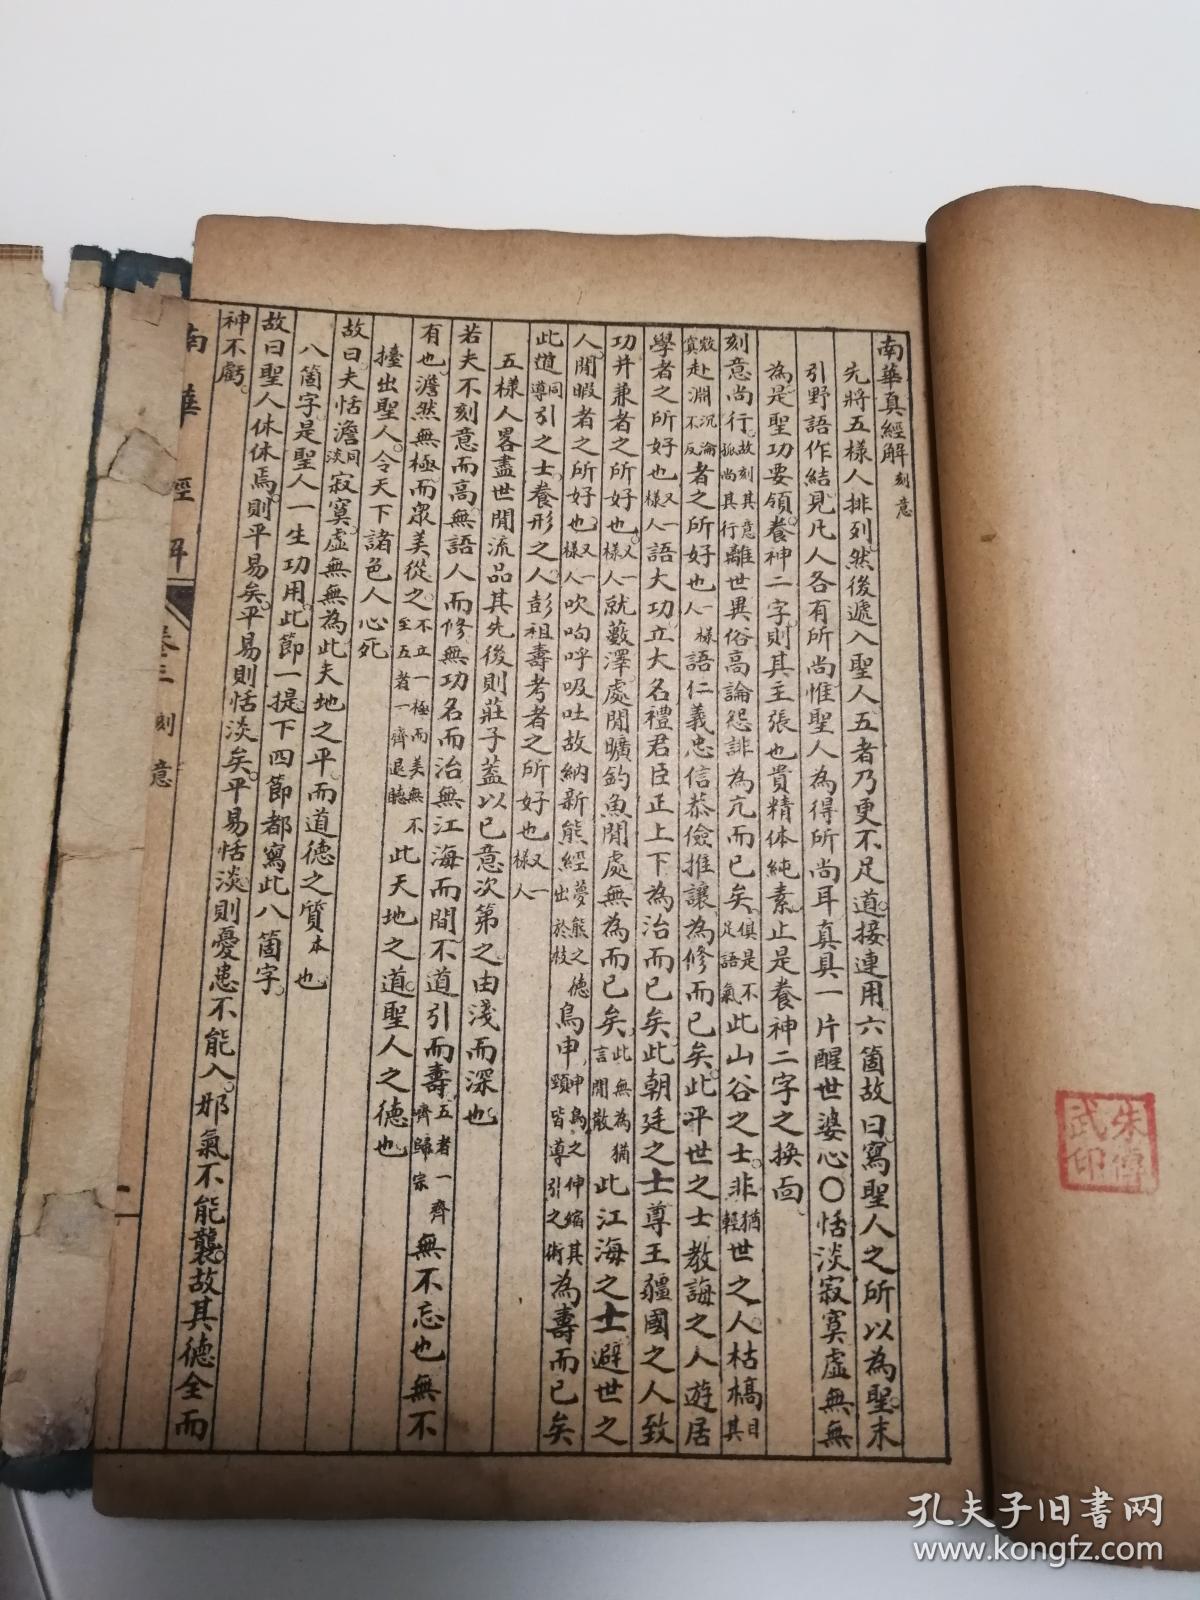 南華真經解 刻意
先將五樣人排列然後遞入聖人五者乃更不足道接連用六箇故曰寫聖人之所以為聖末
引野語作結見凡人各有所尚惟聖人為得所尚耳真具一片醒世婆心〇恬淡寂寞虛無無
為是聖功要領養神二字則其主張也貴精体純素止是養神二字之換面
刻意尚行故刻其意孤尚其行離世異俗高論怨誹為亢而已矣俱是不足語氣此山谷之士非猶輕世之人枯槁其目
赴淵沉淪不反者之所好也一樣人語仁義忠信恭儉推讓為修而已矣此平世之士教誨之人遊居
學者之所好也又一樣人語大功立大名禮君臣正上下為治而已矣此朝廷之士尊王疆國之人致
功并兼者之所好也又一樣人就藪澤處閒曠釣魚閒處無為而已矣此無為猶言閒散此江海之士避世之
人閒暇者之所好也又一樣人吹呴呼吸吐故納新熊經夢熊之德出於枝鳥申申鳥之伸縮其頸皆導引之術為壽而已矣
此道同導引之士養形之人彭祖壽考者之所好也又一樣人
五樣人畧盡世間流品其先後則莊子蓋以已意次第之由淺而深也
若夫不刻意而高無語人而修無功名而治無江海而閒不道引而壽五者一齊齊歸宗無不忘也無不
有也澹然無極而眾美從之不立一極而美無不至五者一齊退聽此天地之道聖人之德也
擡出聖人令天下諸色人心死
故曰夫恬澹同淡寂寞虛無無為此夫地之平而道德之質本也
八箇字是聖人一生功用此節一提下四節都寫此八箇字
故曰聖人休休焉則平易矣平易則恬淡矣平易恬淡則憂患不能入邪氣不能襲故其德全而
神不虧
南華經解 卷三 刻意 一
朱傳武印
孔夫子旧书网
www.kongfz.com